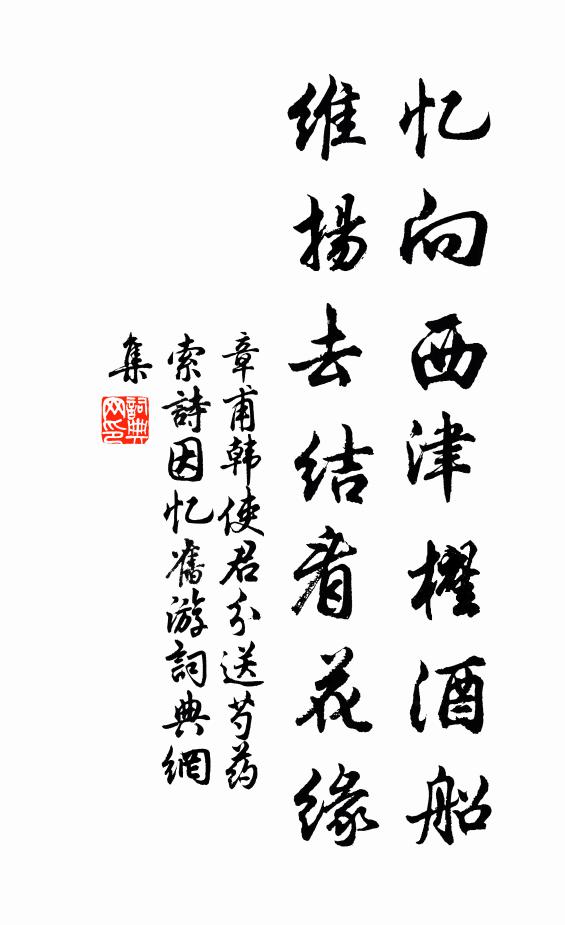 忆向西津櫂酒船
维扬去结看花缘
章甫韩使君分送芍药
索诗因忆旧游词典网
集
词典网印